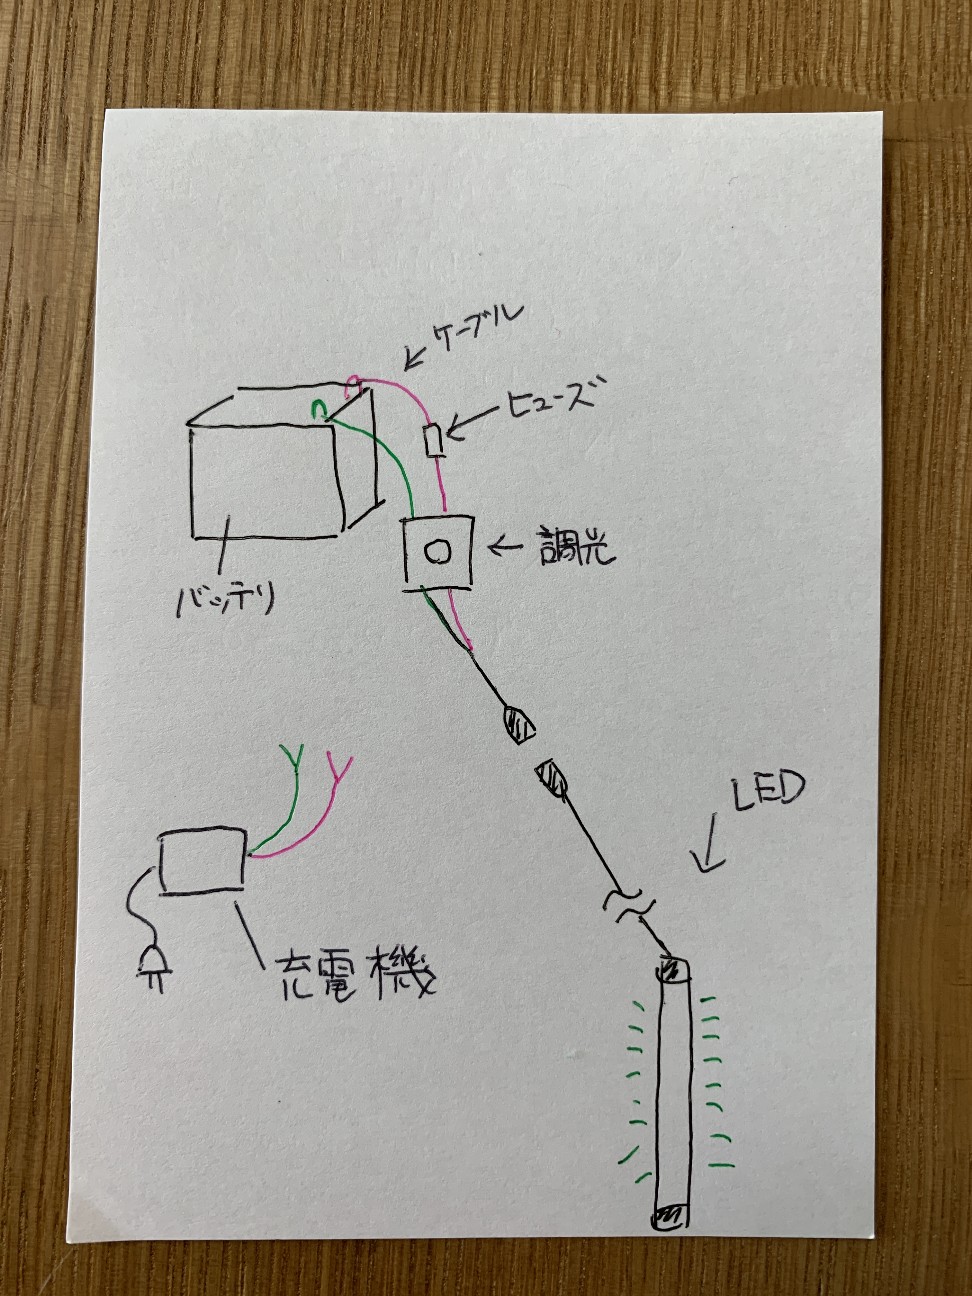 ケーブル
ヒューズ
調光
バッテリ
LED
充電機